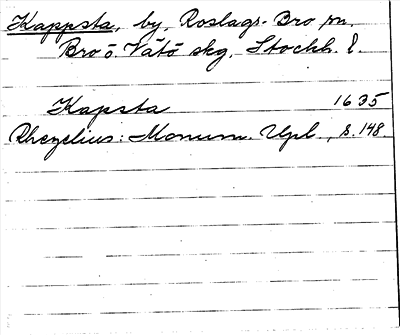 Kappsta, by, Roslags-Bro sn.
Bro o. Vätö skg, Stockh. l.
Kapsta 1635
Rhezelius: Monum. Upl., s. 148.